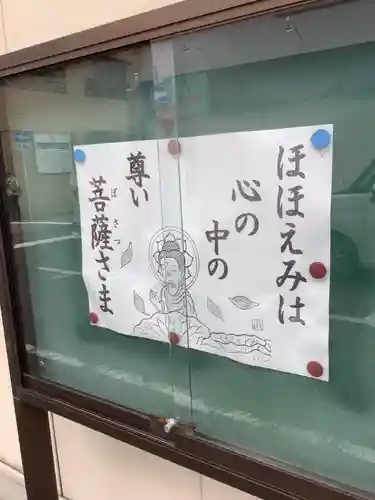 ほほえみは
心の
中の
尊い
菩薩さま
ぼさつ